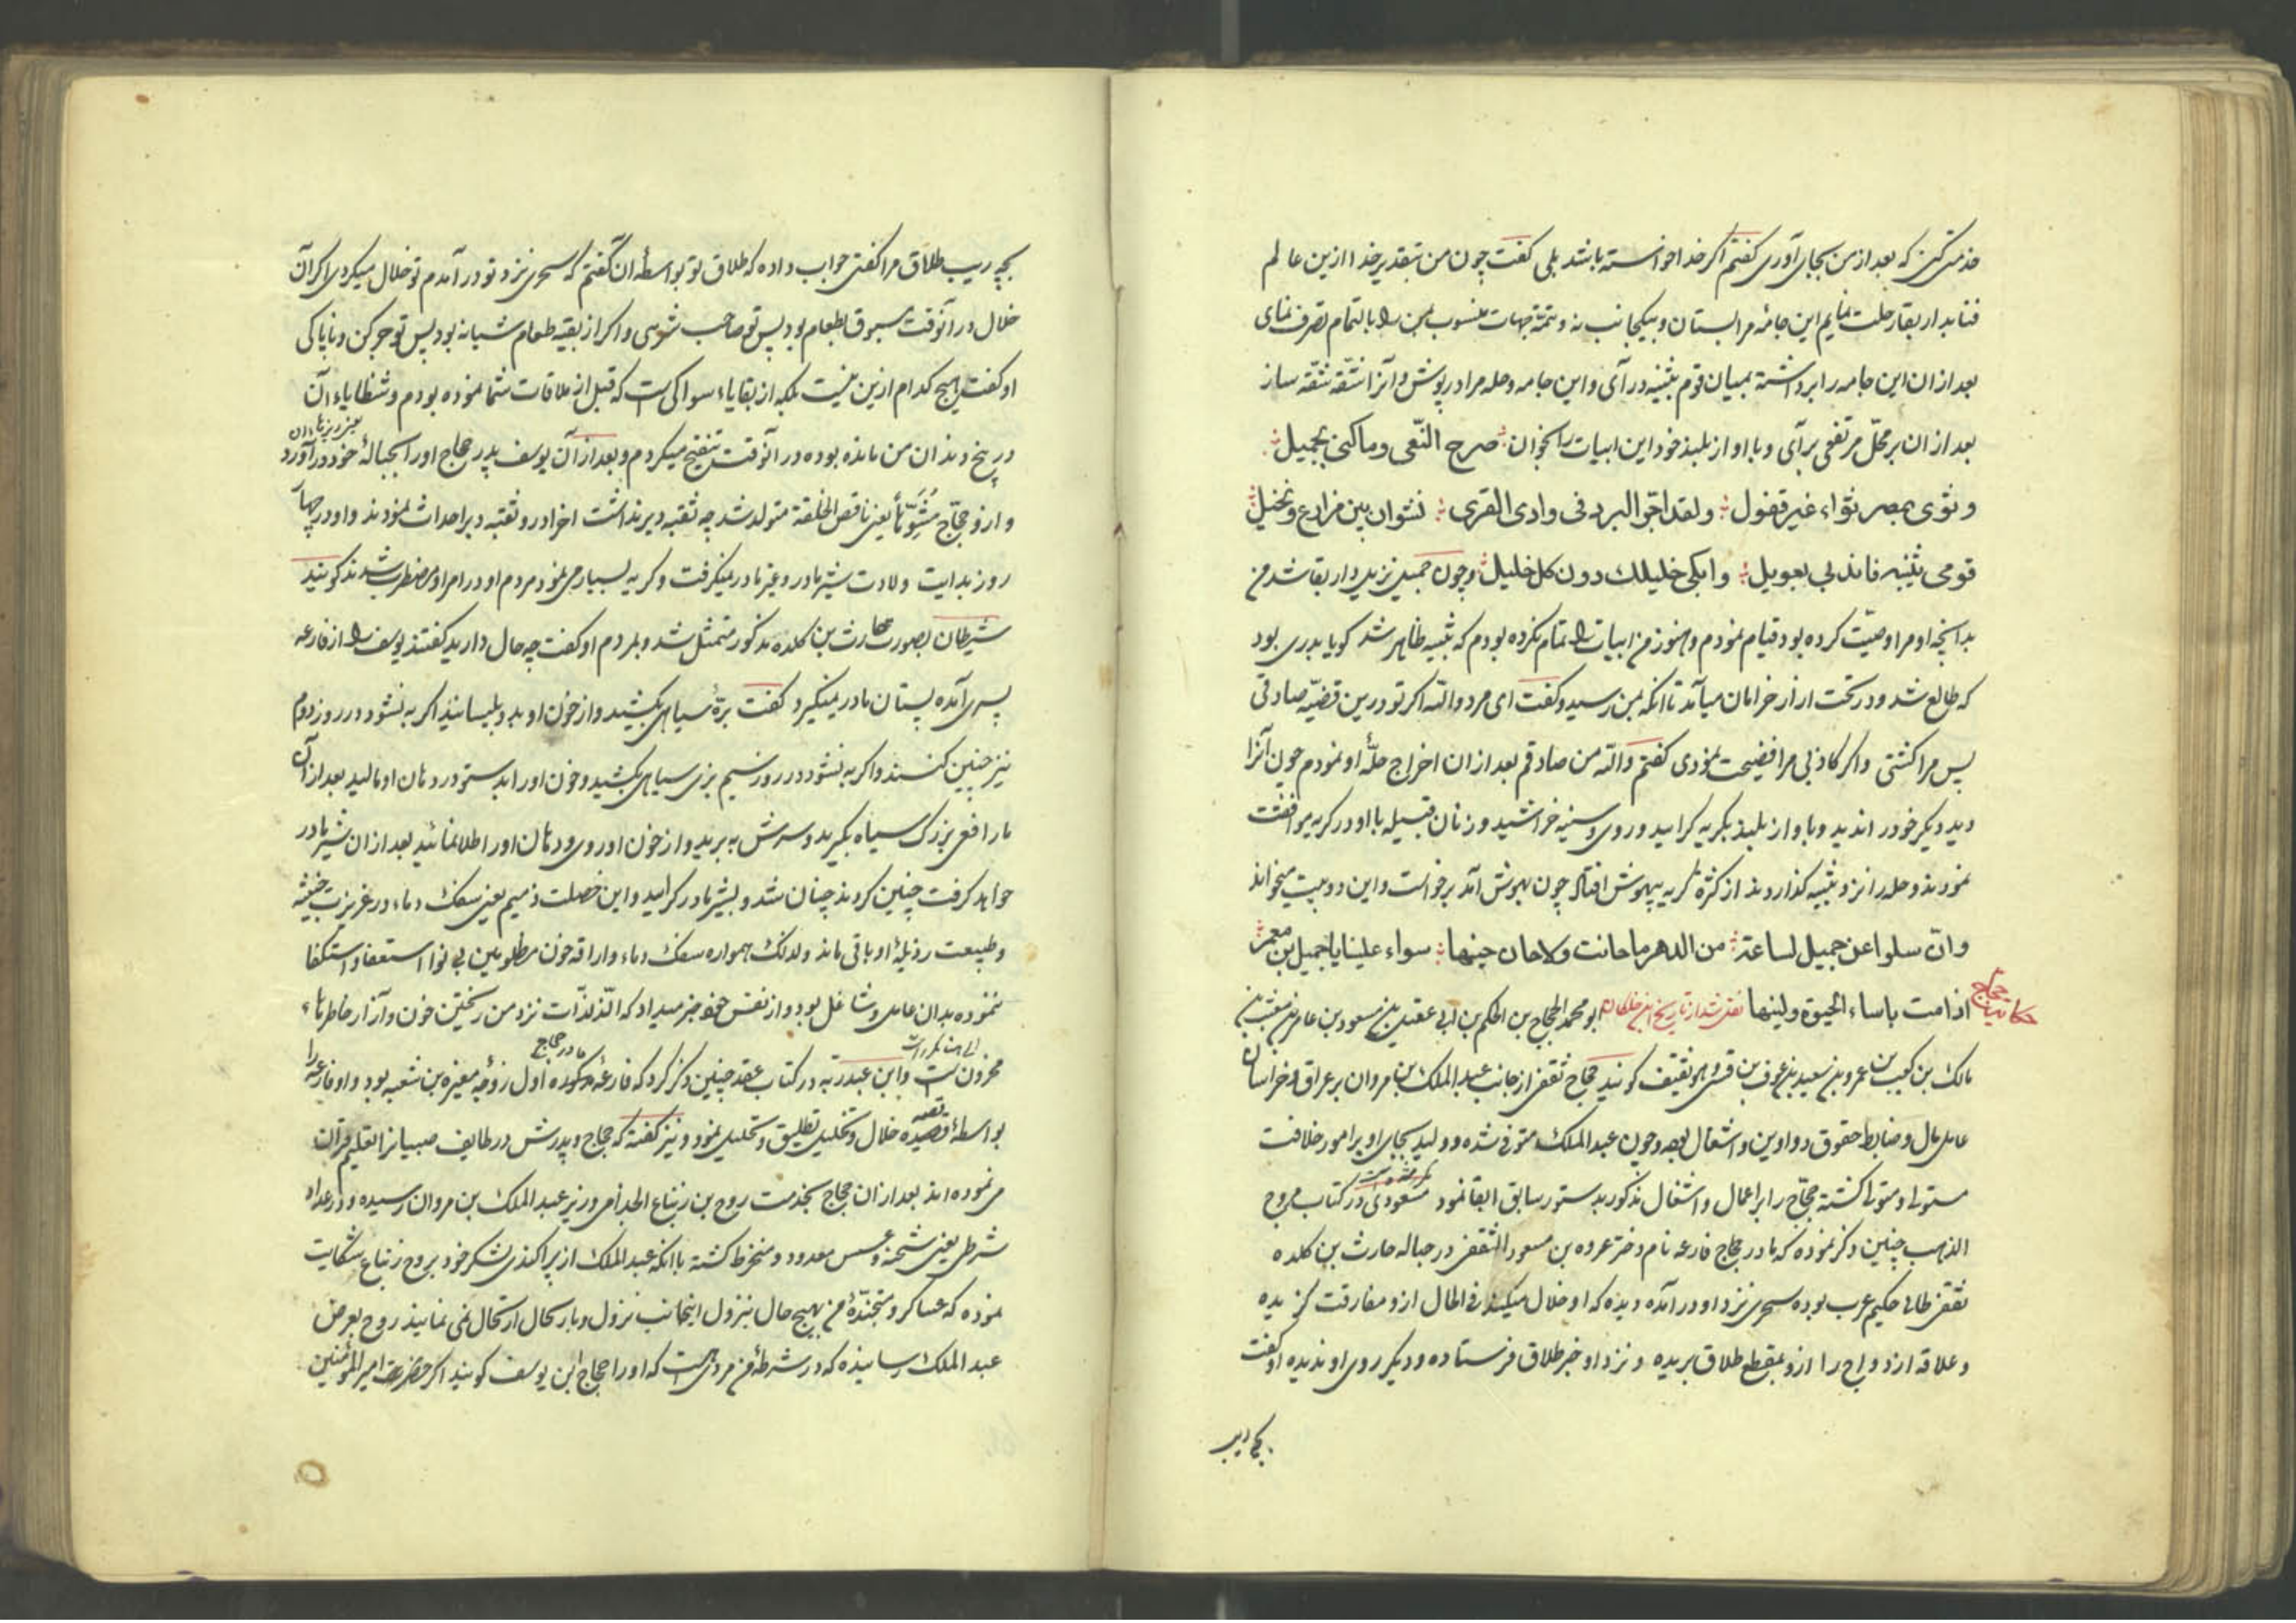 خدمتی کنی که بعد از من بجای آوری کفتم اگر خدا خواسته باشد بلی کفت چون من بتقدیر خدا ازین عالم
فنا بدار بقا رحلت نمایم این جامهٔ مرا بستان و بیکجانب نه و تتمهٔ جهات منسوب بمن را بالتمام تصرف نمای
بعد از ان این جامه را برداشته بمیان قوم بثینه در آی و این جامه و حله مرا در پوش و آنرا شقه شقه ساز
بعد از ان بر محلّ مرتفعی برآی و با آواز بلند خود این ابیات را بخوان صرح النّعی وما کنی بجمیل
و ثوی بمصر ثواء غیر قفول ولقد اجرّ البرد فی وادی القری نشوان بین مزارع ونخیل
قومی بثینه فاندبی بعویل وابکی خلیلك دون کل خلیل و چون جمیل نزیل دار بقا شد من
بدانچه او مرا وصیّت کرده بود قیام نمودم و هنوز من ابیات را تمام نکرده بودم که بثینه ظاهر شد کویا بدری بود
که طالع شد و در تحت ازار خرامان میآمد تا انکه بمن رسید و کفت ای مرد والله اکر تو درین قضیّه صادقی
پس مرا کشتی و اکر کاذبی مرا فضیحت نمودی کفتم والله من صادقم بعد از ان اخراج حلّهٔ او نمودم چون آنرا
دید دیکر خود را ندید و با واز بلند بکریه کرایید و روی و سینه خراشید و زنان قبیله با او در کریه موافقت
نمودند و حله را نزد بثینه کذاردند از کثرة کریه بیهوش افتاد چون بهوش آمد برخواست و این دو بیت میخواند
وانّ سلوا عن جمیل لساعة من الدهر ما حانت ولا حان حینها سواء علینا یا جمیل بن معمر
اذا مت باساء الحیوة ولینها نقل شد از تاریخ ابن خلکان ابو محمد الحجاج بن الحکم بن ابی عقیل بن مسعود بن عامر بن معتب بن
حکایت حجاج
مالك بن کعب بن عمرو بن سعید بن عوف بن قسی وهو ثقیف کویند حجاج ثقفی از جانب عبد الملك بن مروان بر عراق و خراسان
عامل مال و ضابط حقوق دواوین و اشغال بوده و چون عبد الملك متوفی شده و ولید بجای او بر امور خلافت
مستولی و متولی کشته حجّاج را بر اعمال و اشغال مذکور بدستور سابق ابقا نمود مسعودی در کتاب مروج
الذهب چنین ذکر نموده که مادر حجاج فارعه نام دختر عروه بن مسعود الثقفی در حباله حارث بن کلده
ثقفی طائی حکیم عرب بوده سحری نزد او در آمده دیده که او خلال میکند فی الحال ازو مفارقت کزیده
و علاقه ازدواج را ازو بمقطع طلاق بریده و نزد او خبر طلاق فرستاده و دیکر روی او ندیده او کفت
بچه ریب
بچه ریب طلاق مرا کفتی جواب داده که طلاق تو بواسطهٔ ان کفتم که سحری نزد تو در آمدم تو خلال میکردی اکر آن
خلال در آنوقت مسبوق بطعام بود پس تو صاحب شرهی و اکر از بقیه طعام شبانه بود پس تو چرکن و ناپاکی
او کفت هیچ کدام ازین نیست بلکه از بقایاء سواکی است که قبل از ملاقات شما نموده بودم و شظایاء آن
یعنی ریزهاء ان
در بیخ دندان من مانده بوده در آنوقت تنقیح میکردم و بعد از آن یوسف پدر حجاج او را بحبالهٔ خود در آورد
و ازو حجّاج مُشَوّهاً یعنی ناقص الخلقة متولد شد چه ثقبه دبر نداشت اخر ازو ثقبه دبر احداث نمودند و او در چهار
روز بدایت ولادت شیر مادر و غیر مادر نمیکرفت و کریه بسیار می نمود مردم او در امر او مضطرب شدند کویند
شیطان بصورت حارث بن کلده مذکور متمثل شد و بمردم او کفت چه حال دارید کفتند یوسف را از فارعه
پسری آمده پستان مادر نمیکیرد کفت برّهٔ سیاهی بکشید و از خون او بدو بلیسانید اکر به نشود در روز دوم
نیز چنین کنند و اکر به نشود در روز سیم بزی سیاهی بکشید و خون او را بدستور در دهان او مالید بعد از آن
مار افعی بزرك سیاه بکیرید و سرش به برید و از خون او روی و دهان او را طلا نمائید بعد از ان شیر مادر
خواهد کرفت چنین کردند چنان شد و بشیر مادر کرایید و این خصلت ذمیم یعنی سفك دماء در غریزت خبیثه
و طبیعت رذیلهٔ او باقی ماند ولذلك همواره سفك دماء و اراقه خون مظلومین بی نوا استعفا و استکفا
ننموده بدان عامل و شاغل بود و از نفس خود خبر میداد که الذّ لذّات نزد من ریختن خون و آزار خاطرهاء
محزون است و ابن عبدربه در کتاب عقد چنین ذکر کرد که فارعهٔ مذکوره اول زوجه مغیره بن شعبه بود و او فارعه را
مادر حجاج
بواسطهٔ قصیهٔ خلال و تخلیل تطلیق و تحلیل نمود و نیز کفته که حجاج و پدرش در طایف صبیانرا تعلیم قرآن
می نموده اند بعد از ان حجاج بخدمت روح بن زنباع الجذامی وزیر عبد الملك بن مروان رسیده و در عداد
شرطی یعنی شحنه و عسس معدود و منخرط کشته با آنکه عبد الملك از پراکندی لشکر خود بروح زنباع شکایت
نموده که عساکر و متجندهٔ من بهیچ حال بنزول اینجانب نزول و بارتحال ارتحال نمی نمایند روح بعرض
عبد الملك رسانیده که در شرطهٔ من مردی است که او را حجاج ابن یوسف کویند اکر حضرت امیر المؤمنین